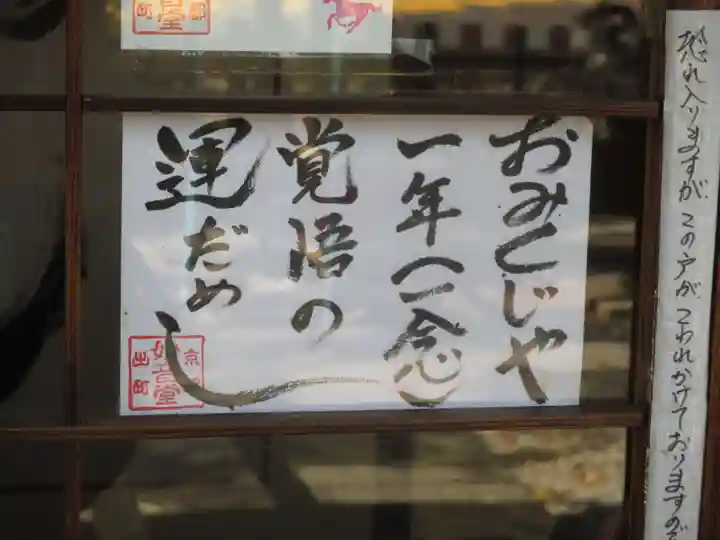 恐れ入りますが、この戸が、こわれかけておりますので
おみくじや
一年(一念)
覚悟の
運だめし
京都
妙音堂
出町